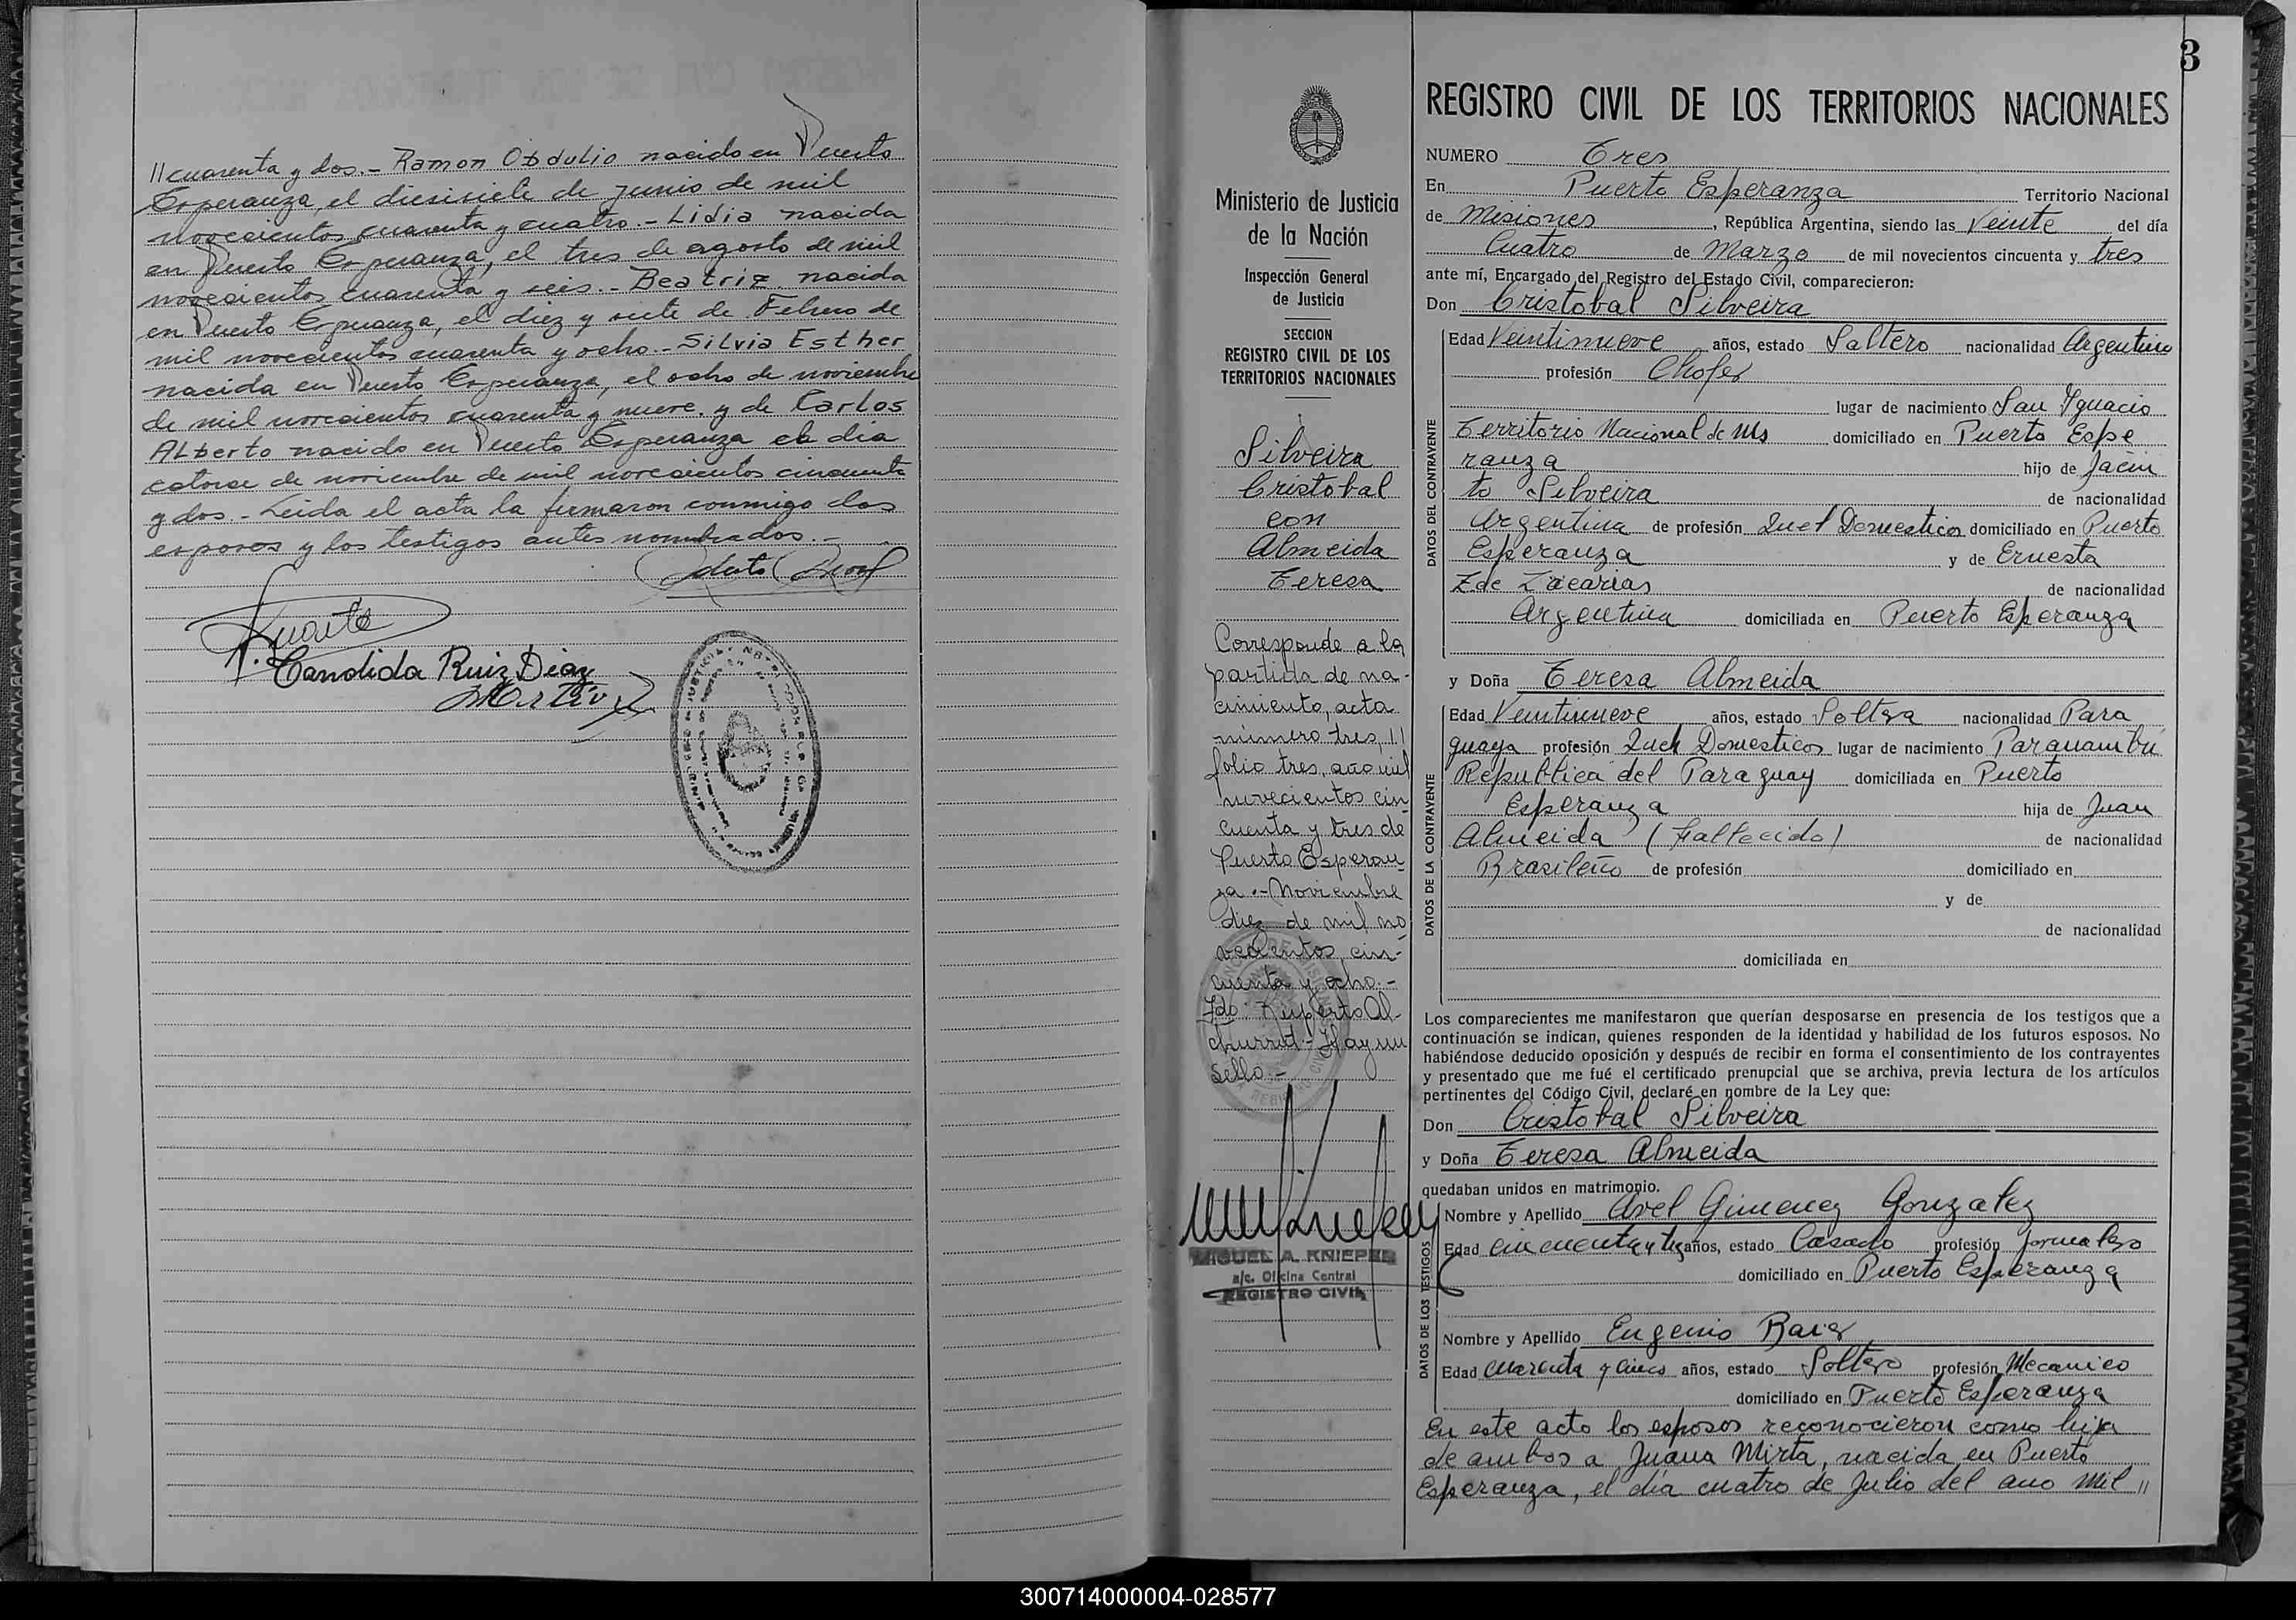 // cuarenta y dos.- Ramon Obdulio nacido en Puerto
Esperanza, el diesisiete de junio de mil
novecientos cuarenta y cuatro.- Lidia nacida
en Puerto Esperanza, el tres de agosto de mil
novecientos cuarenta y seis.- Beatriz nacida
en Puerto Esperanza, el diez y siete de Febrero de
mil novecientos cuarenta y ocho.- Silvia Esther
nacida en Puerto Esperanza, el ocho de noviembre
de mil novecientos cuarenta y nueve. y de Carlos
Alberto nacido en Puerto Esperanza el dia
catorce de noviembre de mil novecientos cincuenta
y dos.- Leida el acta la firmaron conmigo los
esposos y los testigos antes nombrados.-
Duarte
Candida Ruiz Diaz
3
Ministerio de Justicia
de la Nación
Inspección General
de Justicia
SECCION
REGISTRO CIVIL DE LOS
TERRITORIOS NACIONALES
Silveira
Cristobal
con
Almeida
Teresa
Corresponde a la
partida de na-
cimiento, acta
número tres, //
folio tres, año mil
novecientos cin
cuenta y tres de
Puerto Esperan
za.- Noviembre
diez de mil no
vecientos cin-
cuenta y ocho.-
Fdo: Ruperto Al-
Hay un
sello.-
MIGUEL A. KNIEPER
a/c. Oficina Central
REGISTRO CIVIL
REGISTRO CIVIL DE LOS TERRITORIOS NACIONALES
NUMERO Tres
En Puerto Esperanza Territorio Nacional
de Misiones, República Argentina, siendo las Veinte del día
Cuatro de Marzo de mil novecientos cincuenta y tres
ante mí, Encargado del Registro del Estado Civil, comparecieron:
Don Cristobal Silveira
DATOS DEL CONTRAYENTE
Edad Veintinueve años, estado Soltero nacionalidad Argentino
profesión Chofer
lugar de nacimiento San Ygnacio
Territorio Nacional de Ms domiciliado en Puerto Espe
ranza hijo de Jacin
to Silveira de nacionalidad
Argentina de profesión Quet Domesticos domiciliado en Puerto
Esperanza y de Ernesta
Z de Zacarias de nacionalidad
Argentina domiciliada en Puerto Esperanza
y Doña Teresa Almeida
DATOS DE LA CONTRAYENTE
Edad Veintinueve años, estado Soltera nacionalidad Para
guaya profesión Queh Domesticos lugar de nacimiento Paranambú
Republica del Paraguay domiciliada en Puerto
Esperanza hija de Juan
Almeida (Fallecido) de nacionalidad
Brasileño de profesión domiciliado en
y de
de nacionalidad
domiciliada en
Los comparecientes me manifestaron que querían desposarse en presencia de los testigos que a
continuación se indican, quienes responden de la identidad y habilidad de los futuros esposos. No
habiéndose deducido oposición y después de recibir en forma el consentimiento de los contrayentes
y presentado que me fué el certificado prenupcial que se archiva, previa lectura de los artículos
pertinentes del Código Civil, declaré en nombre de la Ley que:
Don Cristobal Silveira
y Doña Teresa Almeida
quedaban unidos en matrimonio.
DATOS DE LOS TESTIGOS
Nombre y Apellido Avel Gimenez Gonzalez
Edad cincuenta y tres años, estado Casado profesión Jornalero
domiciliado en Puerto Esperanza
Nombre y Apellido Eugenio Baier
Edad cuarenta y cinco años, estado Soltero profesión Mecanico
domiciliado en Puerto Esperanza
En este acto los esposos reconocieron como hija
de ambos a Juana Mirta, nacida en Puerto
Esperanza, el día cuatro de Julio del ano mil //
300714000004-028577